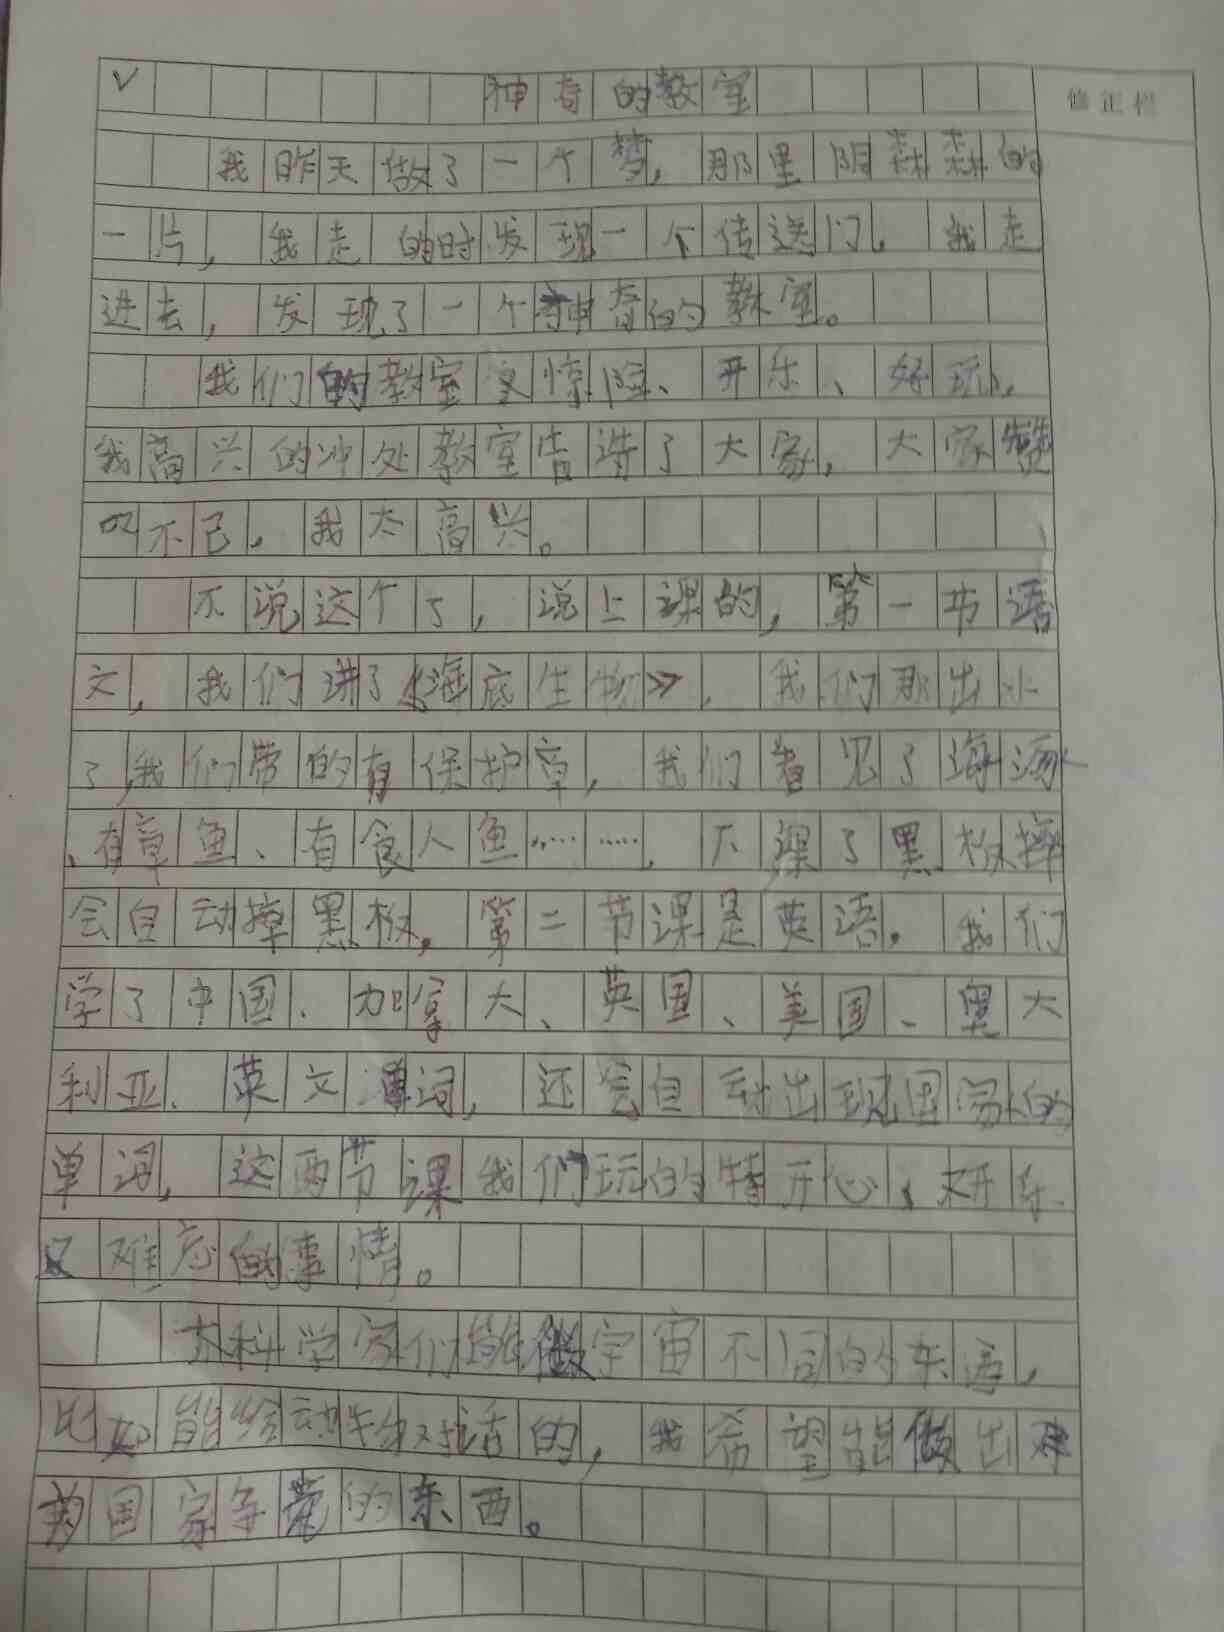 神奇的教室
修正栏
我昨天做了一个梦，那里阴森森的
一片，我走的时发现一个传送门，我走
进去，发现了一个神奇的教室。
我们的教室又惊险、开乐、好玩，
我高兴的冲处教室告诗了大家，大家赞
叹不己，我太高兴。
不说这个了，说上课的，第一节语
文，我们讲了《海底生物》，我们那出水
了，我们带的有保护章，我们看见了海
、有章鱼、有食人鱼…… ，下课了黑板擦
会自动擦黑板，第二节课是英语，我们
学了中国、加拿大、英国、美国、奥大
利亚、英文单词，还会自动出现国家的
单词，这两节课我们玩的特开心，又开乐
又难忘的事情。
科学家们能做宇宙不同的东西，
比如能给动物对话的，我希望能做出
为国家争光的东西。